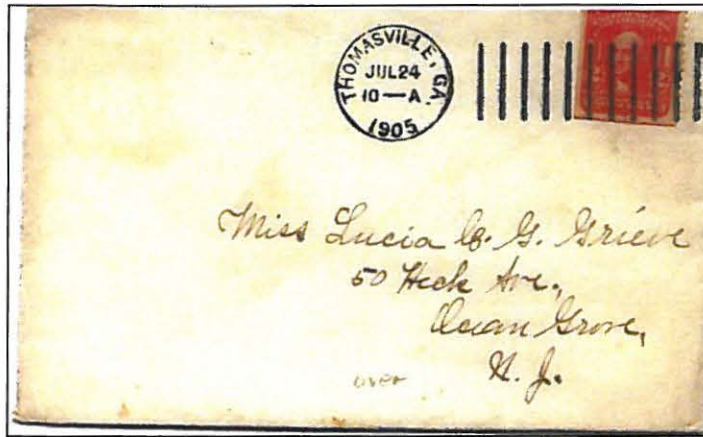 THOMASVILLE, GA.
JUL 24
10—A
1905
Miss Lucia C. G. Grieve
50 Heck Ave.,
Ocean Grove,
N. J.
over